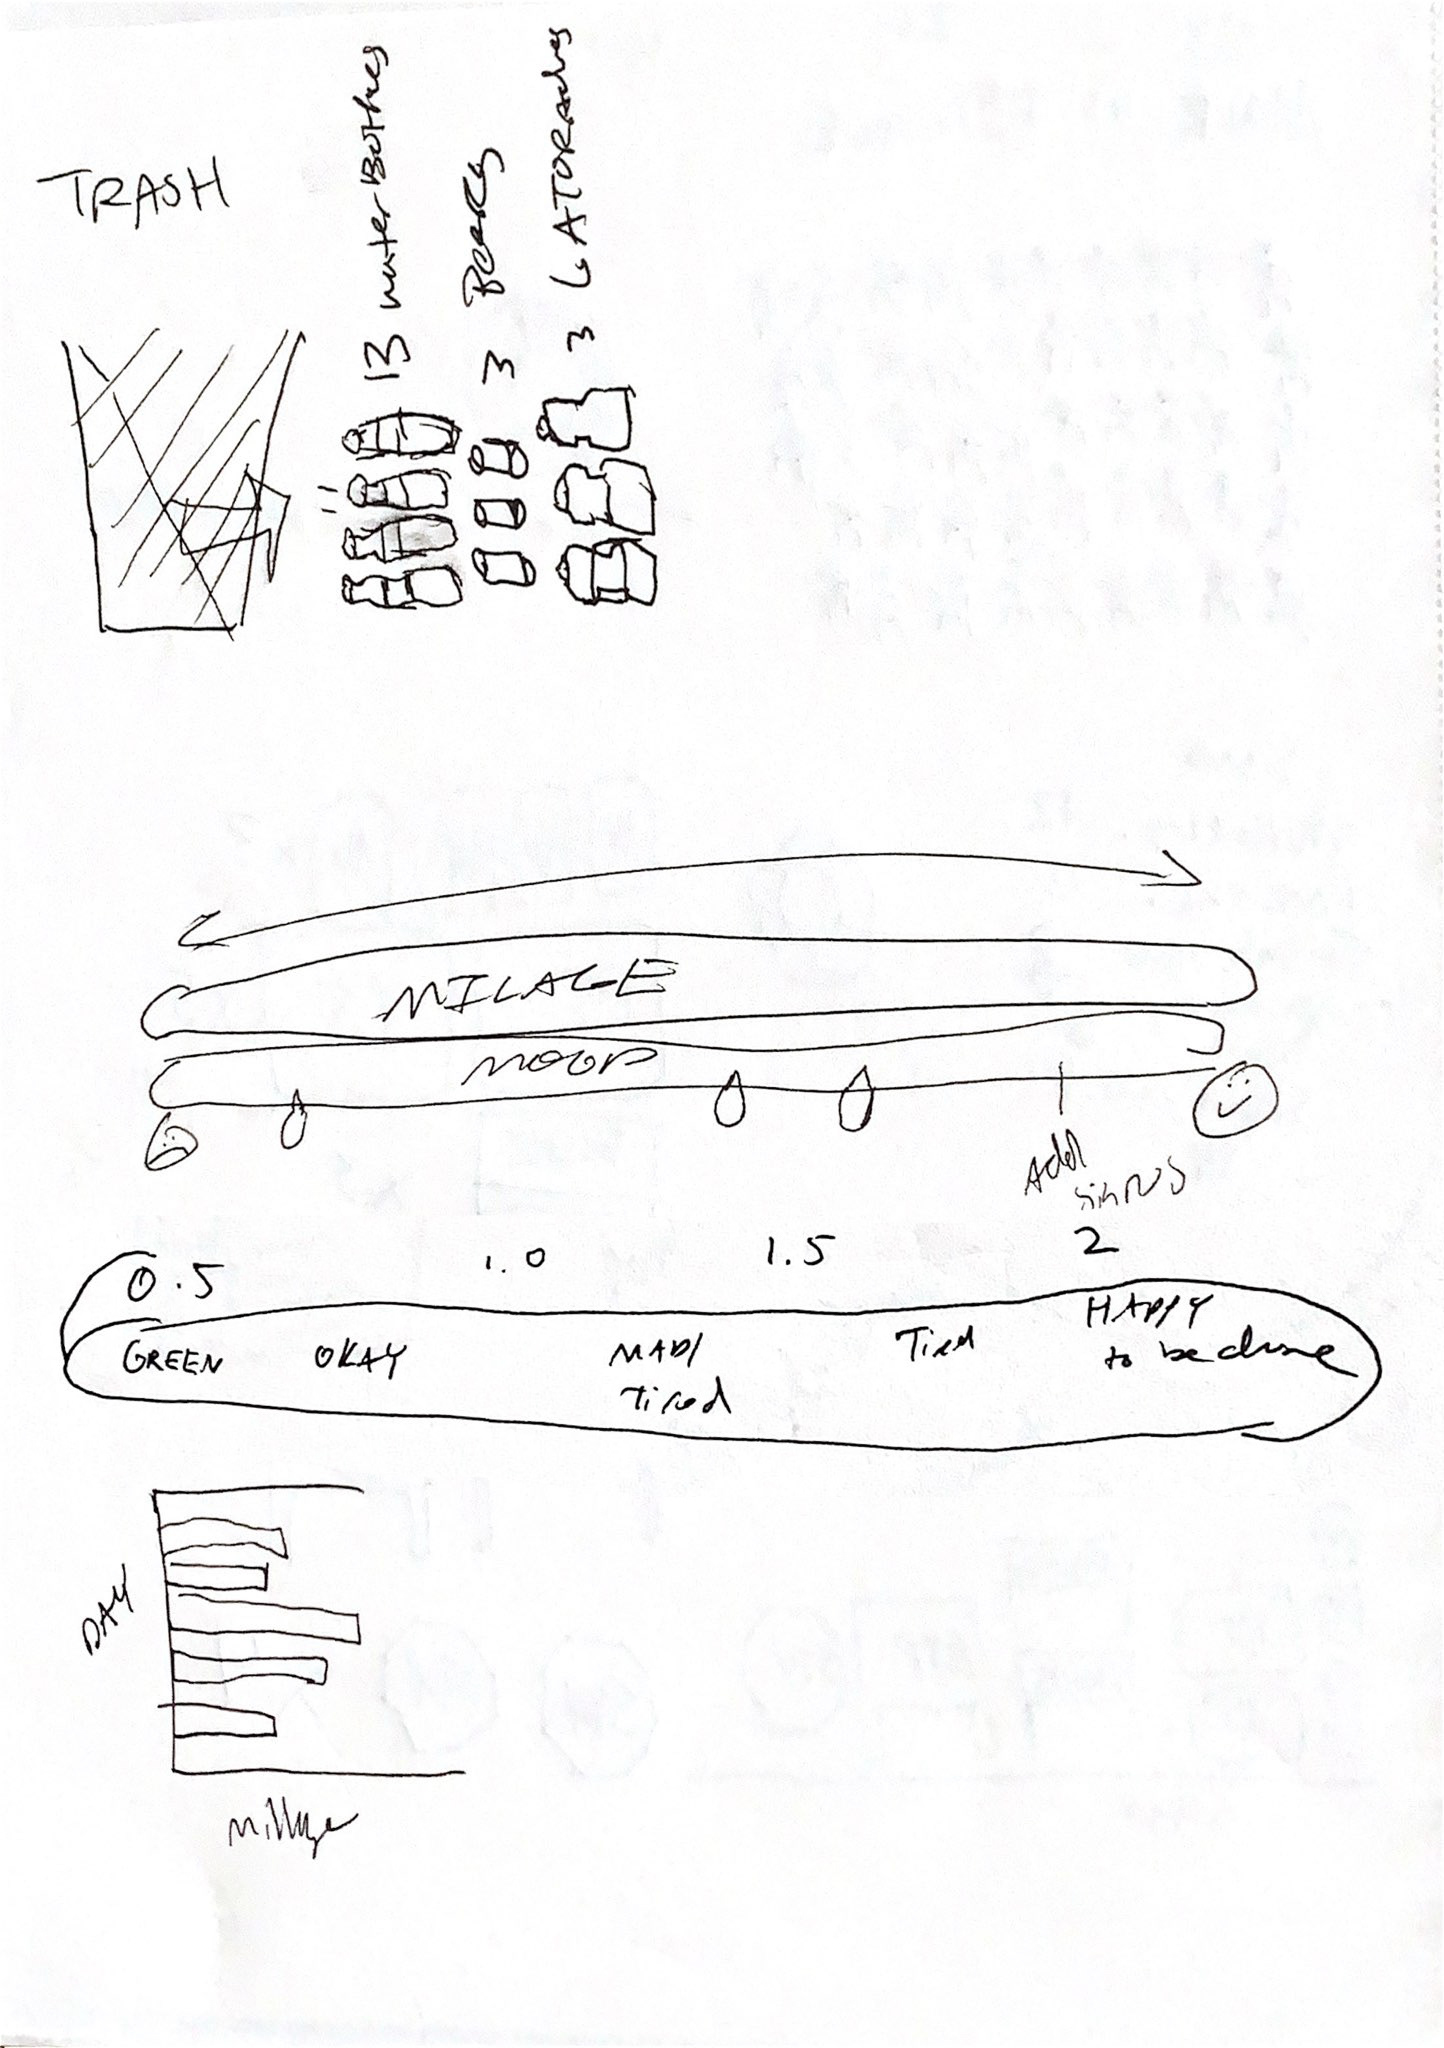 TRASH
13 water Bottles
3 Beers
3 GATORAdes
MILAGE
MOOD
Add
signs
0.5 1.0 1.5 2
GREEN OKAY MAD/ Tired HAPPY
Tired to be done
DAY
Millage